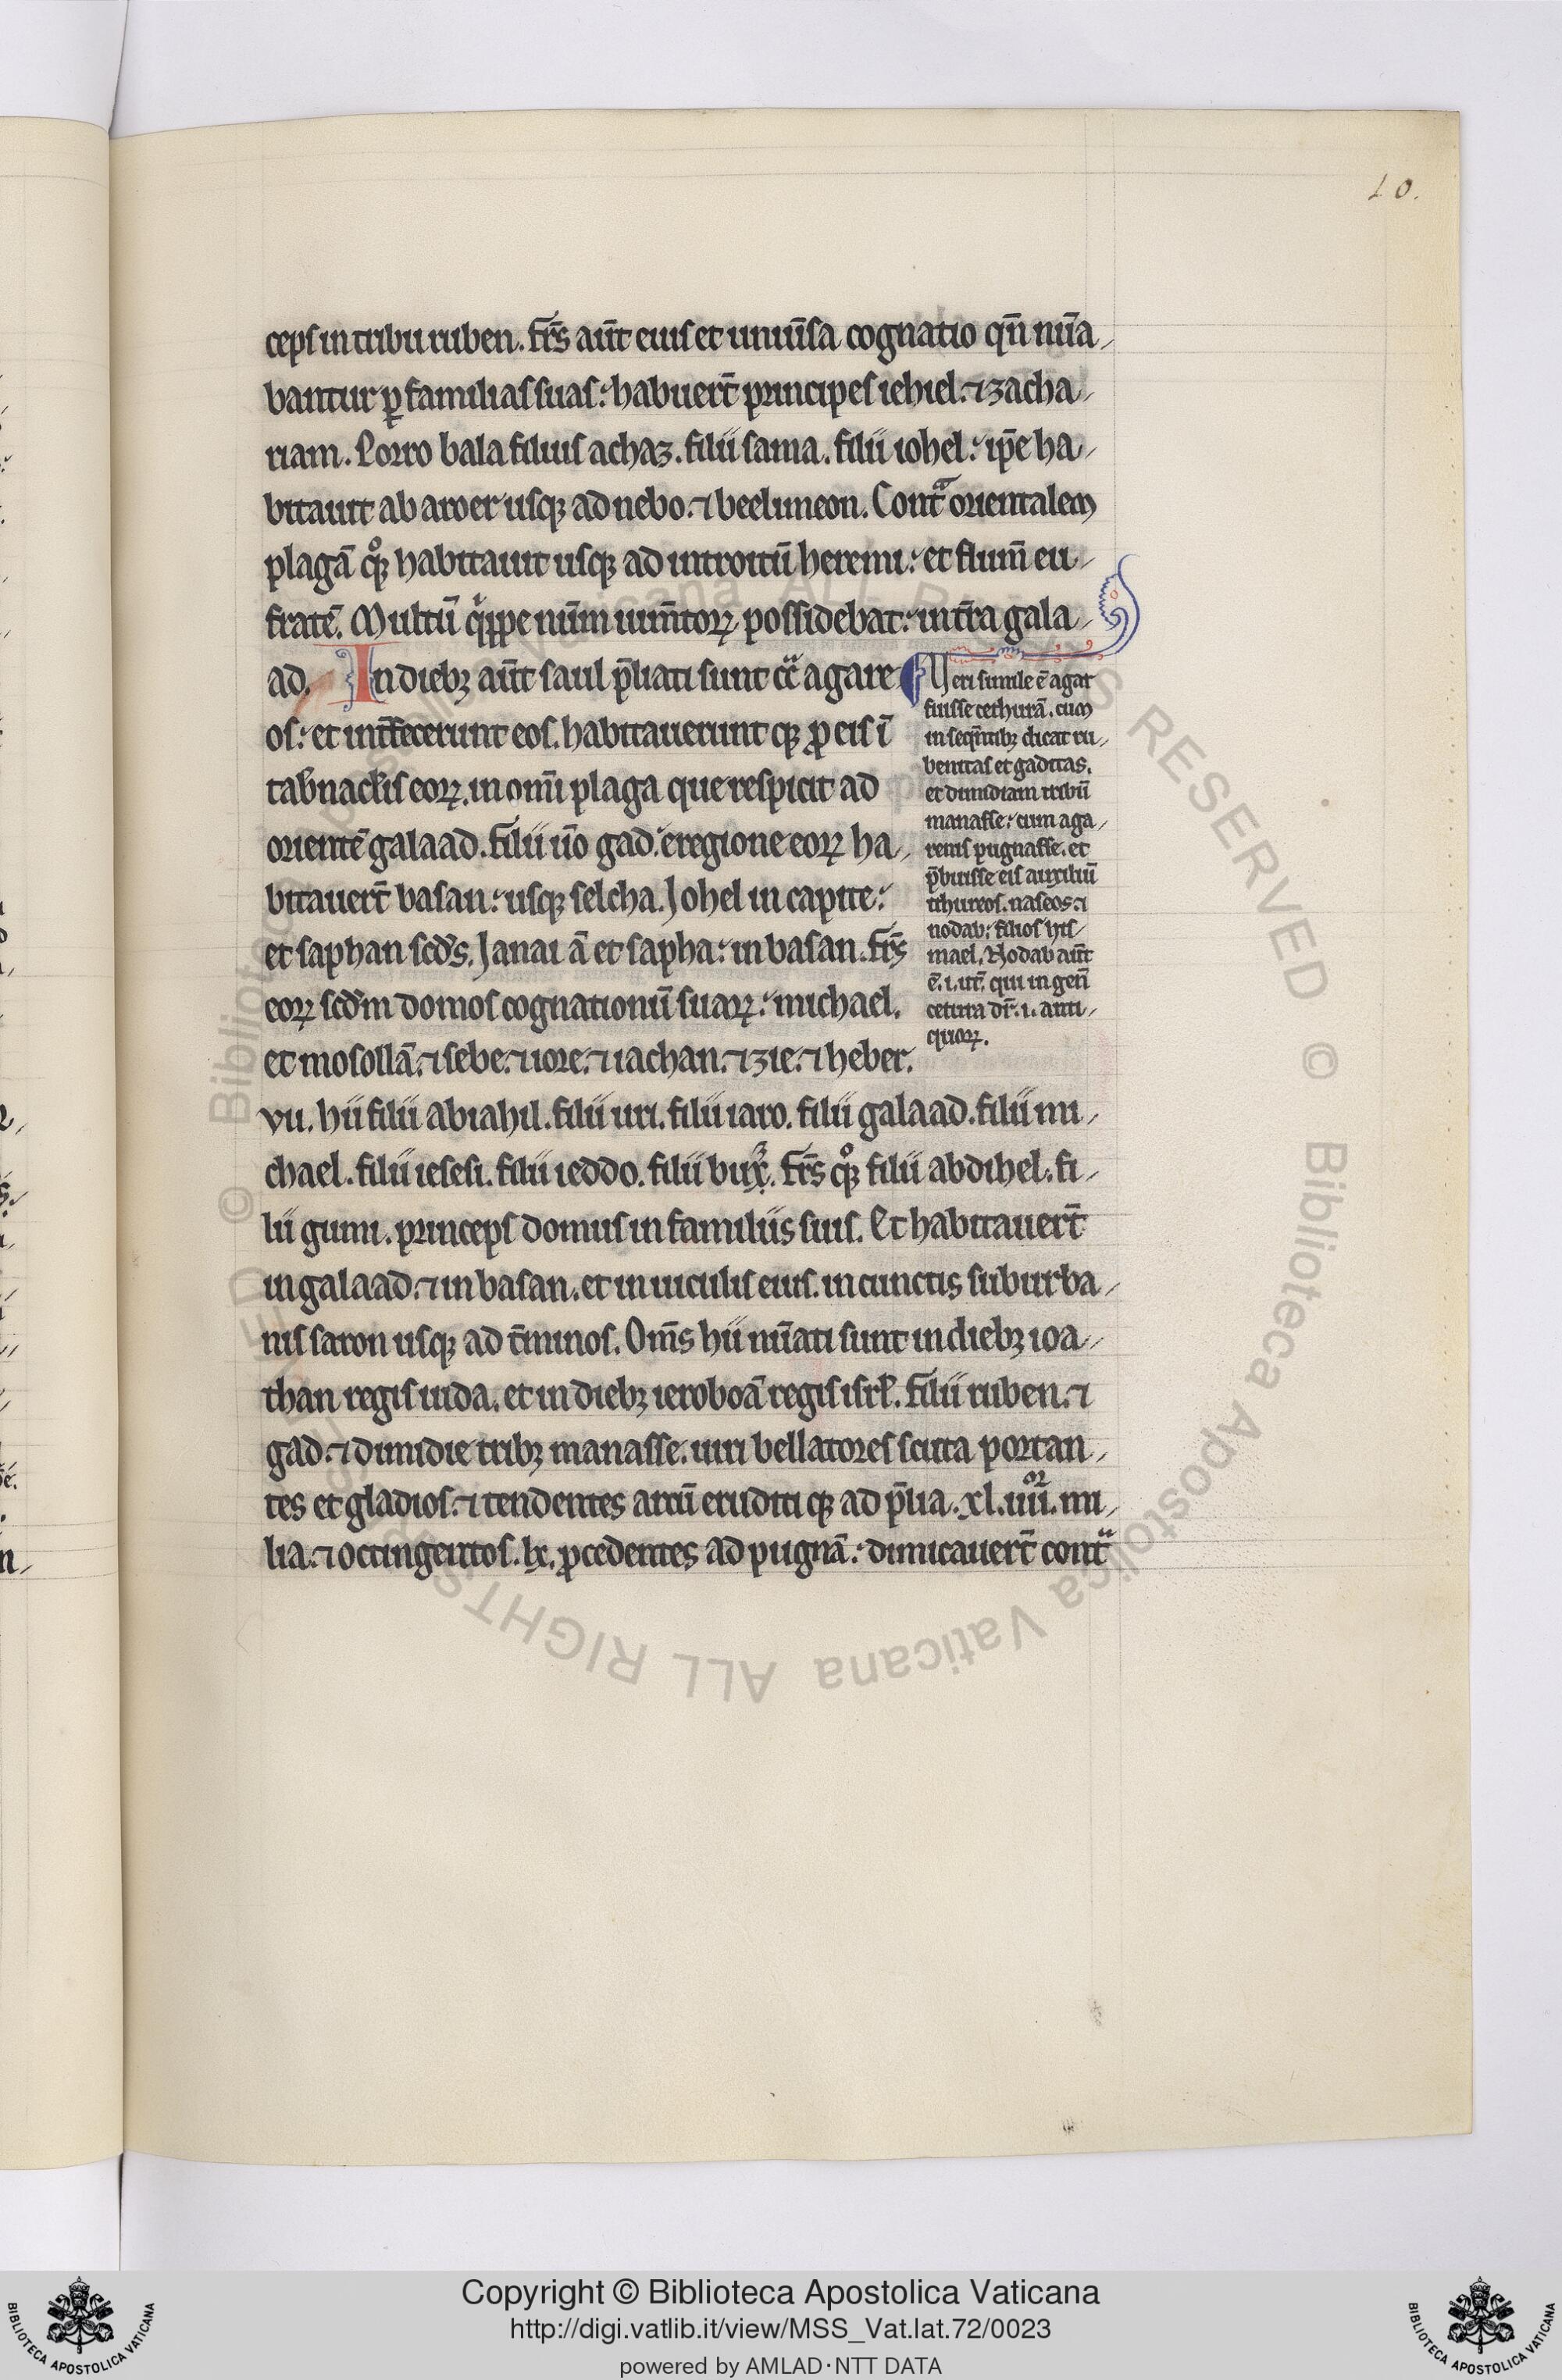 10.
ceps in tribu ruben. Frēs aūt eius et uniūsa cognatio qn̄ nūa
bantur ꝑ familias suas: habuert̄ principes iehiel. ⁊ zacha
riam. Porro bala filius achaz. filii sama. filii iohel: ip̄e ha
bitauit ab aroer usqꝫ ad nebo. ⁊ beelmeon. Contᵃ orientalem
plagā qͦqꝫ habitauit usqꝫ ad introitū heremi: et flum̄ eu
fratē. Multū qͥppe nūm ium̄torꝝ possidebat: in tr̄a gala
ad. In diebꝫ aūt saul p̄liati sunt cᵃ agare
os: et int̄fecerunt eos. habitauerunt qꝫ ꝓ eis ī
tab̄nacl̄is eorꝝ. in om̄i plaga que respicit ad
orientē galaad. Filii ūo gad. e regione eorꝝ ha
bitauert̄ basan: usqꝫ selcha. Johel in capite:
et saphan scd̄s. Janai ā et sapha: in basan. Frēs
eorꝝ scd̄m domos cognationū suarꝝ: michael.
et mosollā. ⁊ sebe. ⁊ iore. ⁊ iachan. ⁊ zie. ⁊ heber.
vii. hii filii abiahil. filii uri. filii iaro. filii galaad. filii mi
chael. filii iesesi. filii ieddo. filii buz. Frēs qͦqꝫ filii abdihel. fi
lii guni. princeps domus in familiis suis. Et habitauert̄
in galaad. ⁊ in basan. et in uiculis eius. in cunctis suburba
nis saron usqꝫ ad t̄minos. Om̄s hii nūati sunt in diebꝫ ioa
than regis iuda. et in diebꝫ ieroboā regis isrl̄. Filii ruben. ⁊
gad. ⁊ dimidie tribꝫ manasse. uiri bellatores scuta portan
tes et gladios. ⁊ tendentes arcū eruditi qꝫ ad p̄lia. xl. iiiiᵒʳ. mi
lia. ⁊ octingentos. lx. ꝓcedentes ad pugnā: dimicauert̄ contᵃ
Veri simile ē agar
fuisse cethurā. cum
in seqn̄tibꝫ dicat ru
benitas et gaditas.
et dimidiam tribū
manasse: cum aga
renis pugnasse. et
p̄buisse eis auxiliū
ithureos. naseos. ⁊
nodab: filios his
mael. Nodab aūt
ē. i. ur̄. qui in gen̄
cetura dr̄. i. anti
quorꝝ.
Copyright © Biblioteca Apostolica Vaticana
http://digi.vatlib.it/view/MSS_Vat.lat.72/0023
powered by AMLAD·NTT DATA
BIBLIOTECA APOSTOLICA VATICANA
BIBLIOTECA APOSTOLICA VATICANA
© Biblioteca Apostolica Vaticana ALL RIGHTS RESERVED © Biblioteca Apostolica Vaticana ALL RIGHTS RESERVED